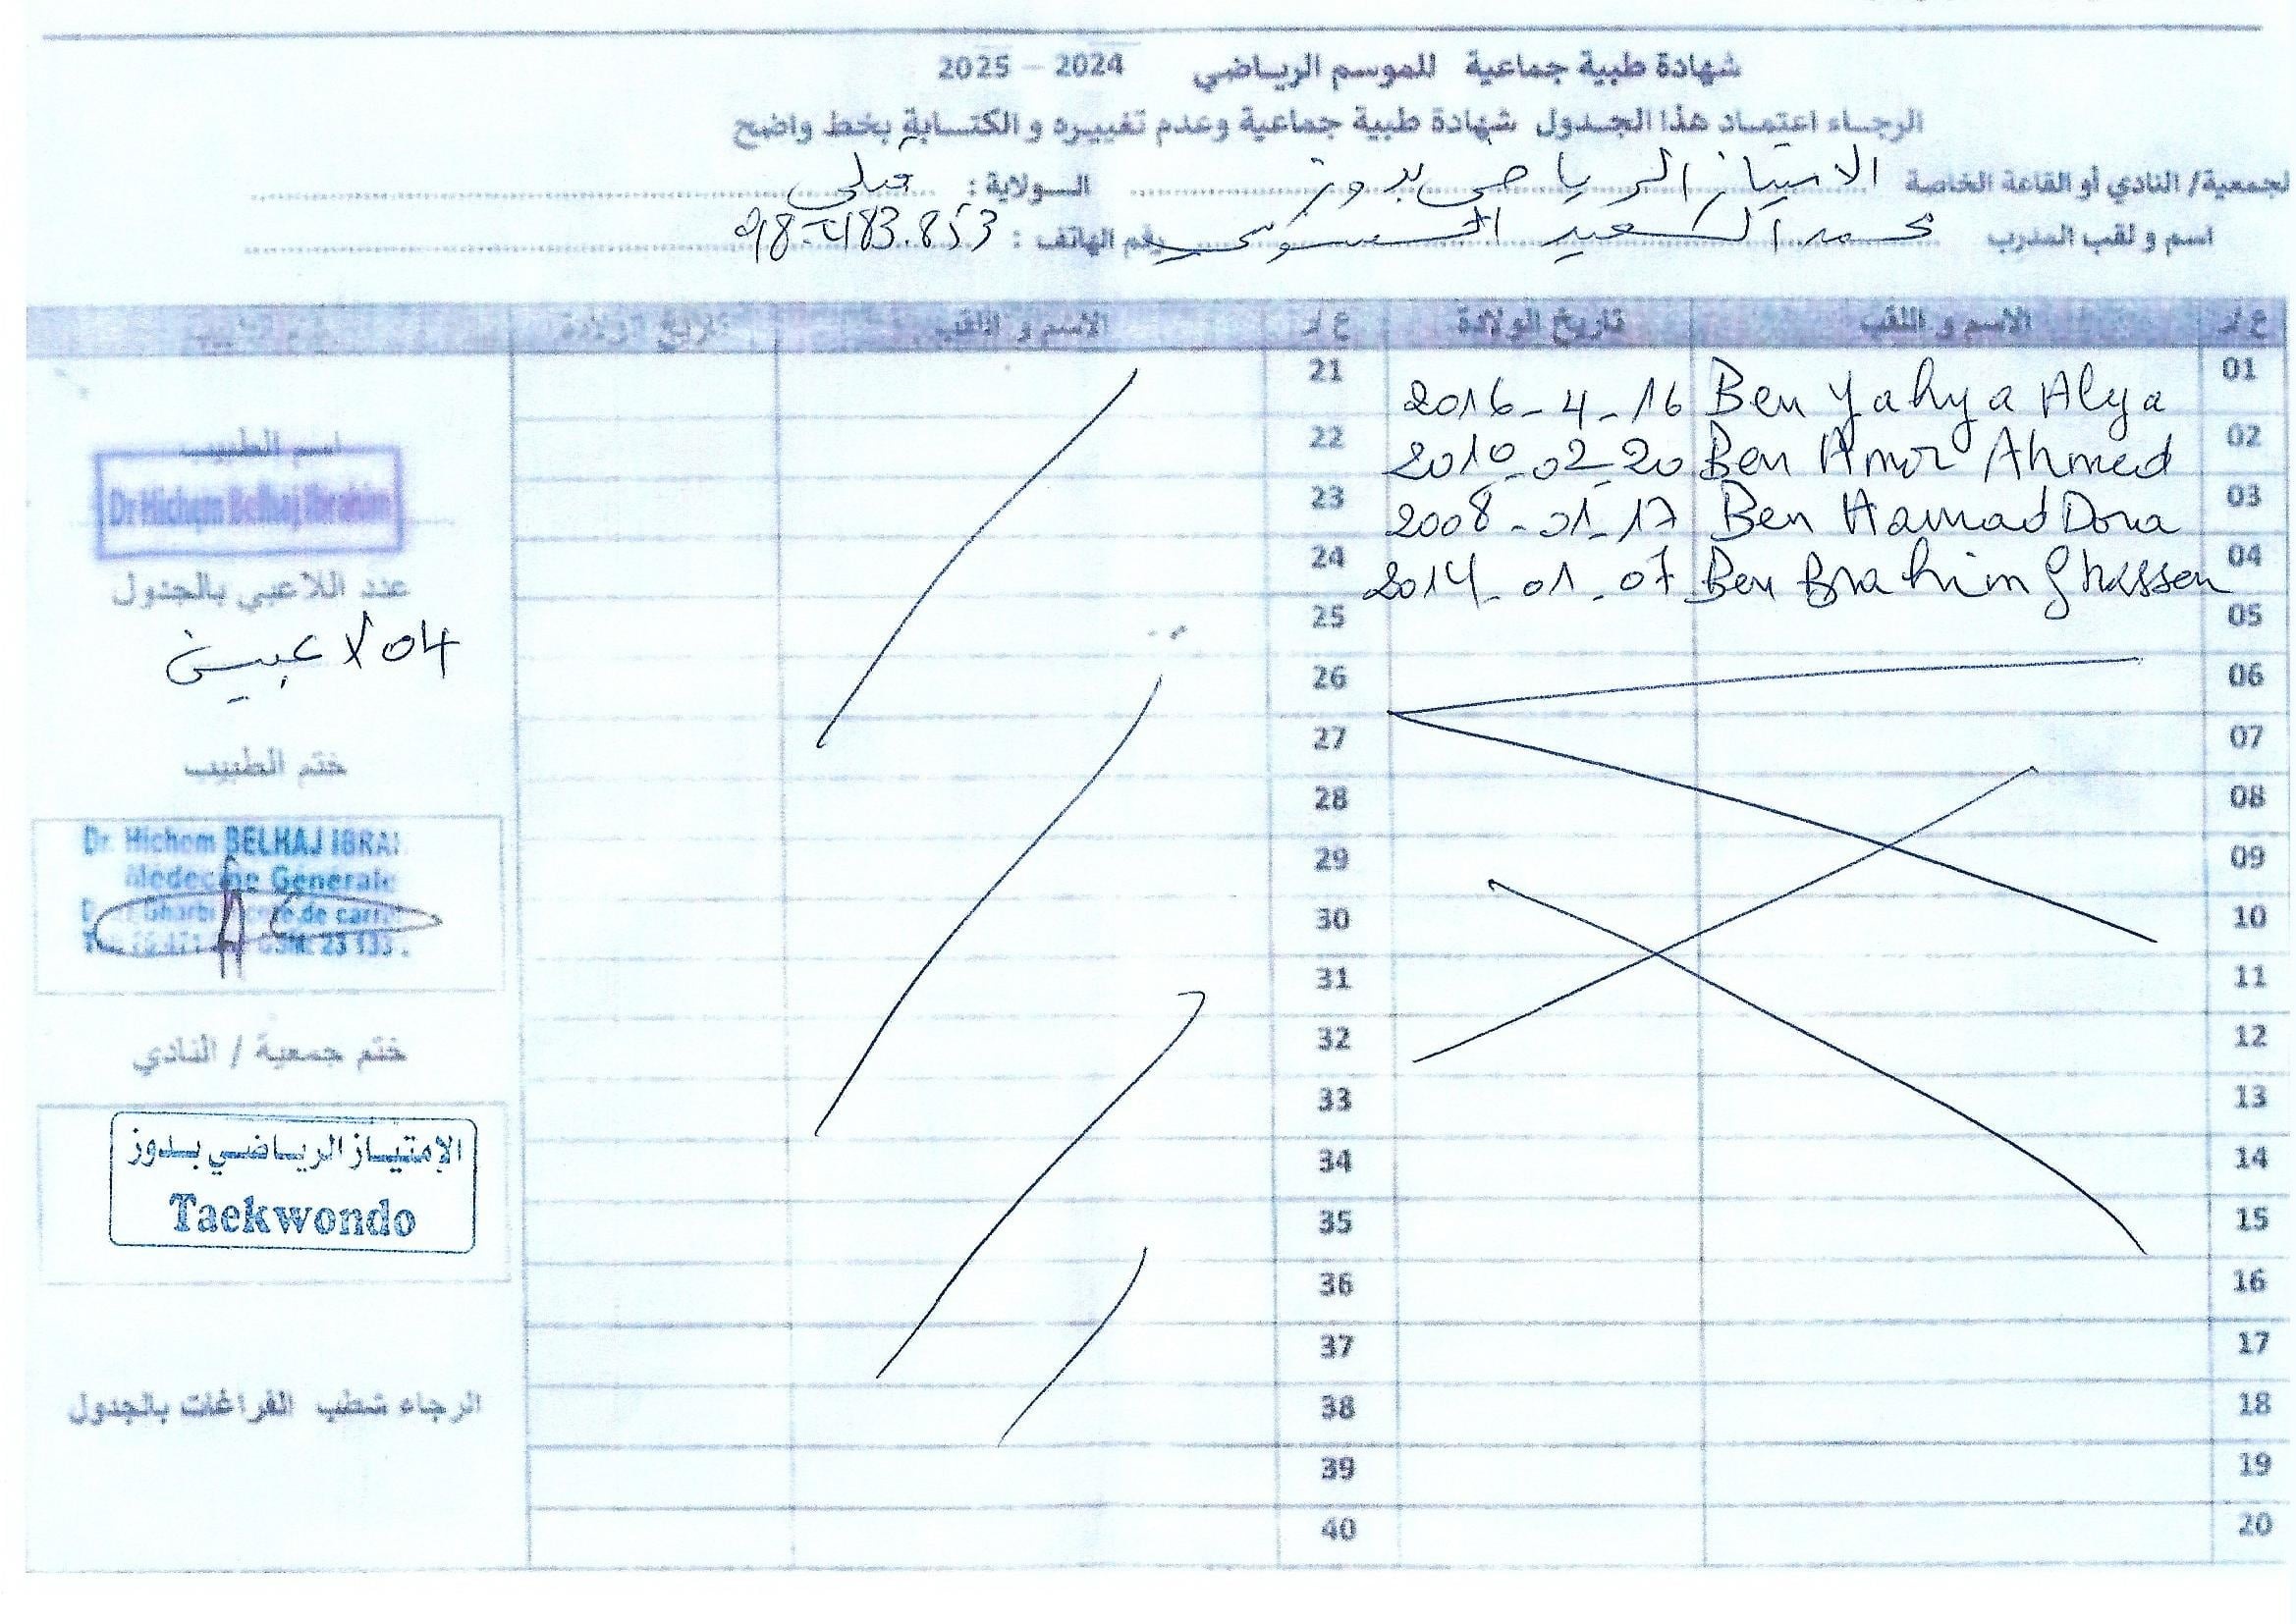 شهادة طبية جماعية للموسم الرياضي 2024 – 2025
الرجاء اعتماد هذا الجدول شهادة طبية جماعية وعدم تغييره و الكتابة بخط واضح
لجمعية/ النادي أو القاعة الخاصة الامتياز الرياضي بدوز الولاية : قبلي
اسم و لقب المدرب محمد السعيد رقم الهاتف : 98.483.853
ع ر الاسم و اللقب تاريخ الولادة ع ر الاسم و اللقب تاريخ الولادة
01 Ben Yahya Alya 2016-4-16 21
02 Ben Amor Ahmed 2010-02-20 22
03 Ben Hamad Dona 2008-01-17 23
04 Ben Brahim Ghassen 2014-01-07 24
05 25
06 26
07 27
08 28
09 29
10 30
11 31
12 32
13 33
14 34
15 35
16 36
17 37
18 38
19 39
20 40
اسم الطبيب
Dr Hichem Belhaj Ibrahim
عدد اللاعبي بالجدول
04 لاعبين
ختم الطبيب
Dr. Hichem BELHAJ IBRAH
Medecine Generale
ختم جمعية / النادي
الإمتياز الرياضي بدوز
Taekwondo
الرجاء شطب الفراغات بالجدول